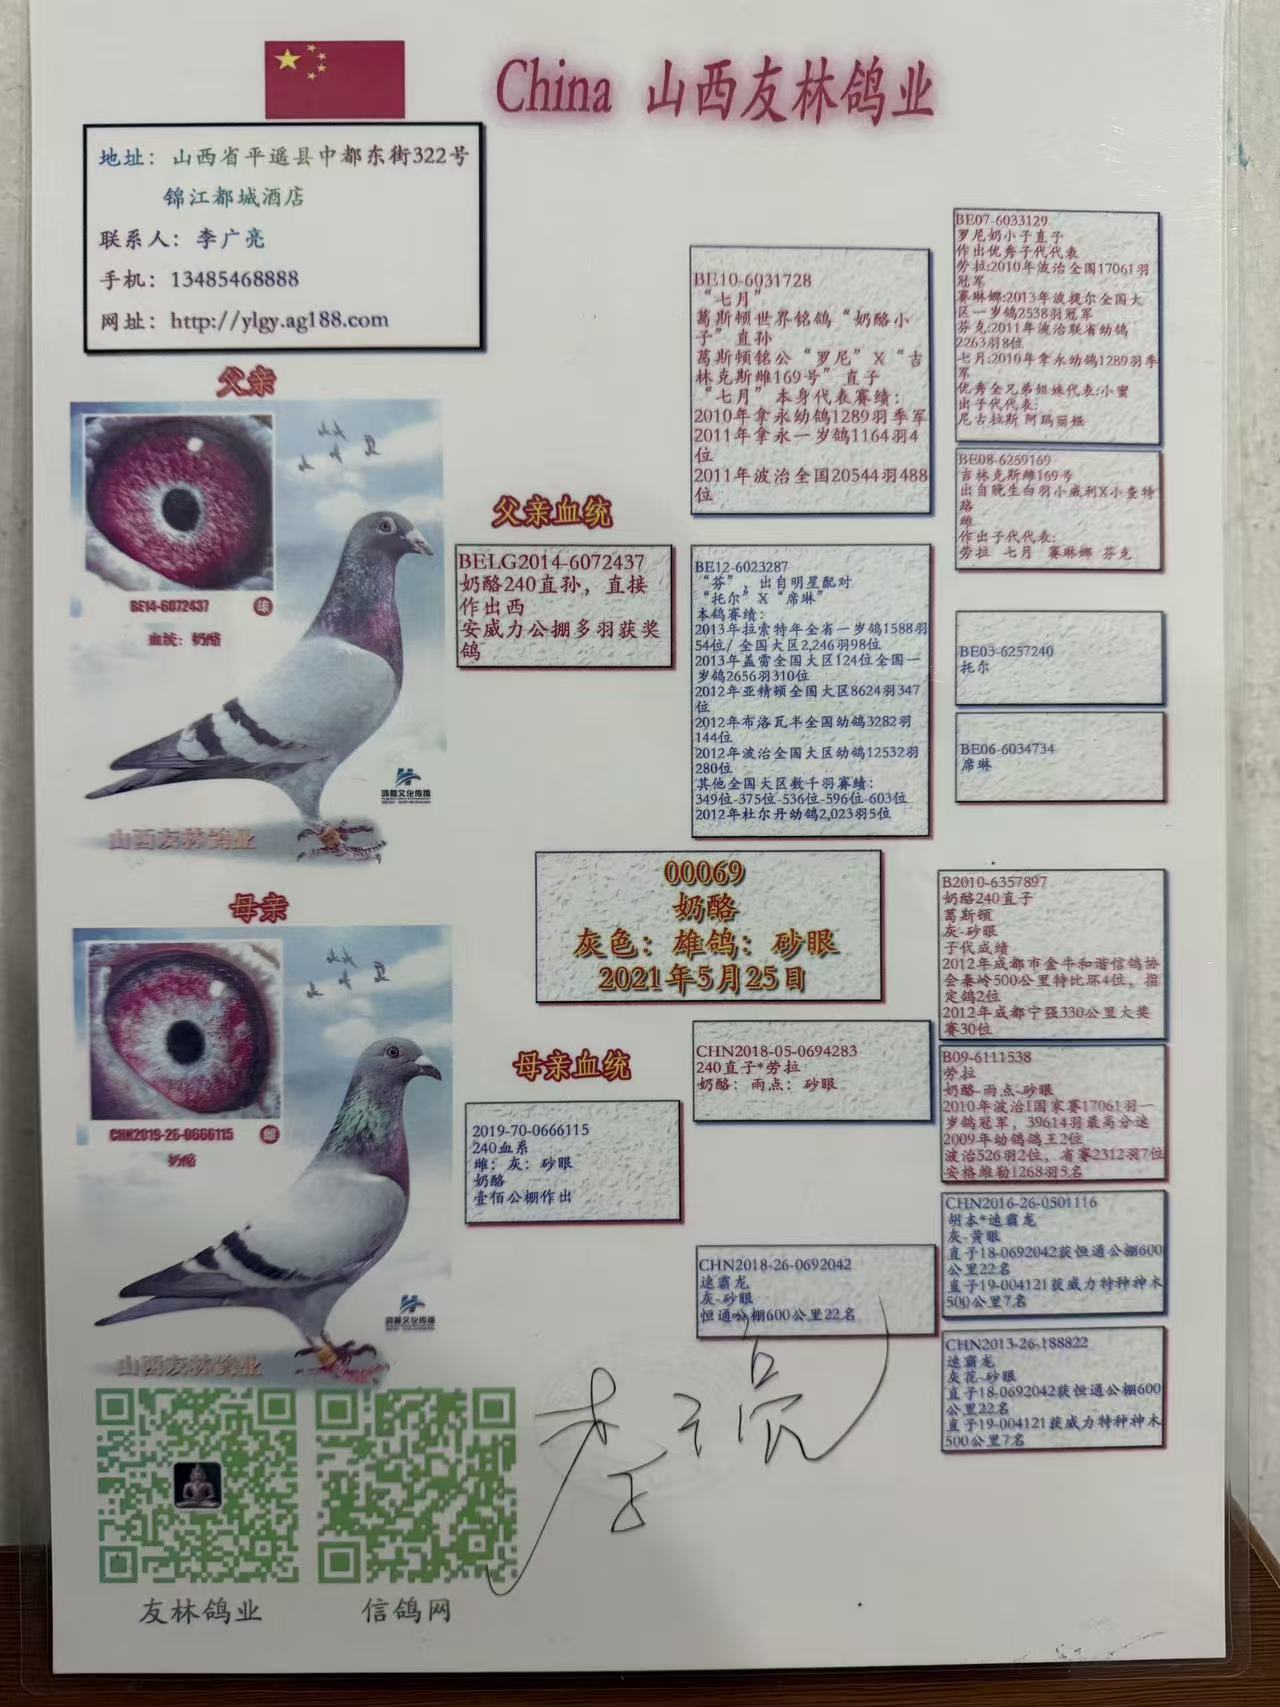 China 山西友林鸽业
地址：山西省平遥县中都东街322号
锦江都城酒店
联系人：李广亮
手机：13485468888
网址：http://ylgy.ag188.com
父亲
BE14-6072437
雄
血统：奶酪
鸿蓉文化传播
山西友林鸽业
父亲血统
BELG2014-6072437
奶酪240直孙，直接
作出西
安威力公棚多羽获奖
鸽
BE10-6031728
“七月”
葛斯顿世界铭鸽“奶酪小
子”直孙
葛斯顿铭公“罗尼”X“吉
林克斯雌169号”直子
“七月”本身代表赛绩：
2010年拿永幼鸽1289羽季军
2011年拿永一岁鸽1164羽4
位
2011年波治全国20544羽488
位
BE12-6023287
“芬”，出自明星配对
“托尔”X“席琳”
本鸽赛绩：
2013年拉索特年全省一岁鸽1588羽
54位/ 全国大区2,246羽98位
2013年盖雷全国大区124位全国一
岁鸽2656羽310位
2012年亚精顿全国大区8624羽347
位
2012年布洛瓦半全国幼鸽3282羽
144位
2012年波治全国大区幼鸽12532羽
280位
其他全国大区数千羽赛绩：
349位-375位-536位-596位-603位
2012年杜尔丹幼鸽2,023羽5位
BE07-6033129
罗尼奶小子直子
作出优秀子代代表
劳拉:2010年波治全国17061羽
冠军
赛琳娜:2013年波提尔全国大
区一岁鸽2538羽冠军
芬克:2011年波治联省幼鸽
2263羽8位
七月:2010年拿永幼鸽1289羽季
军
优秀全兄弟姐妹代表:小蜜
出子代代表:
尼古拉斯 阿玛丽娅
BE08-6259169
吉林克斯雌169号
出自晚生白羽小威利X小查特
路
雌
作出子代代表:
劳拉 七月 赛琳娜 芬克
BE03-6257240
托尔
BE06-6034734
席琳
00069
奶酪
灰色：雄鸽：砂眼
2021年5月25日
母亲
CHN2019-26-0666115
雌
奶酪
鸿蓉文化传播
山西友林鸽业
母亲血统
2019-70-0666115
240血系
雌：灰：砂眼
奶酪
壹佰公棚作出
CHN2018-05-0694283
240直子*劳拉
奶酪：雨点：砂眼
CHN2018-26-0692042
速霸龙
灰-砂眼
恒通公棚600公里22名
B2010-6357897
奶酪240直子
葛斯顿
灰-砂眼
子代成绩
2012年成都市金牛和谐信鸽协
会秦岭500公里特比环4位，指
定鸽2位
2012年成都宁强330公里大奖
赛30位
B09-6111538
劳拉
奶酪-雨点-砂眼
2010年波治I国家赛17061羽一
岁鸽冠军，39614羽最高分速
2009年幼鸽鸽王2位
波治526羽2位，省赛2312羽7位
安格维勒1268羽5名
CHN2016-26-0501116
胡本*速霸龙
灰-黄眼
直子18-0692042获恒通公棚600
公里22名
直子19-004121获威力特种神木
500公里7名
CHN2013-26-188822
速霸龙
灰花-砂眼
直子18-0692042获恒通公棚600
公里22名
直子19-004121获威力特种神木
500公里7名
友林鸽业
信鸽网